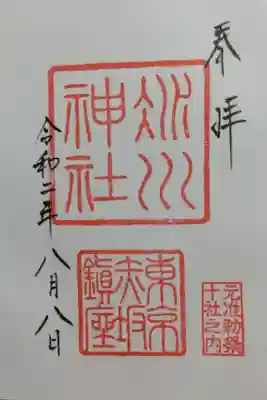 奉拝
氷川
神社
東京
赤坂
鎮座
元准勅祭
十社之内
令和二年
八月八日